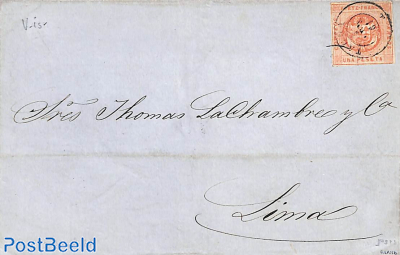 V-is-
UNA PESETA
Sres Thomas LaChambre y Ca
Lima
PostBeeld